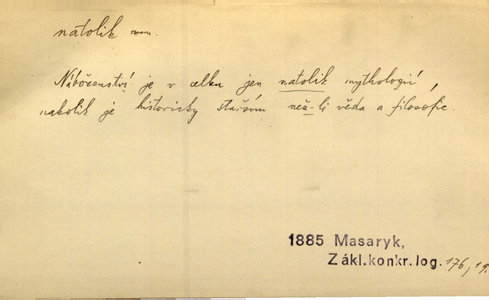 natolik
Náboženství je v celku jen natolik mythologií
nakolik je historicky než-li věda a filosofie.
1885 Masaryk,
Zákl.konkr.log. 176, 19.